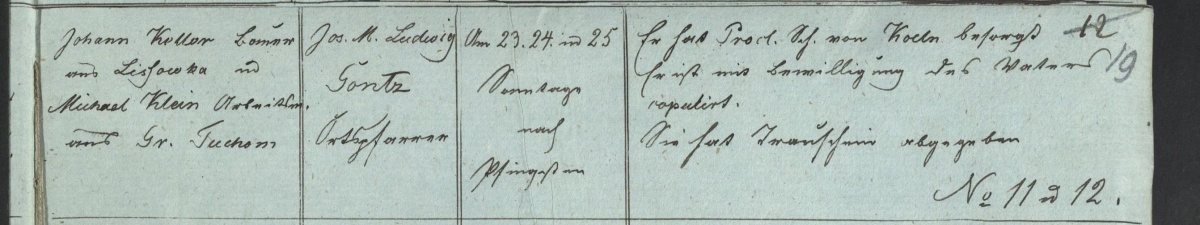 Johann Keller Bauer
aus Lissowka ud
Michael Klein Arbeitsm.
aus Gr. Tuchom
Jos. M. Ludwig
Gontz
Ortspfarrer
Am 23. 24. ud 25
Sonntage
nach
Pfingsten
Er hat Procl. Sch. von Koeln besorgt
Er ist mit Bewilligung des Vaters
copulirt.
Sie hat Trauschein abgegeben
No 11 ud 12.
12
19